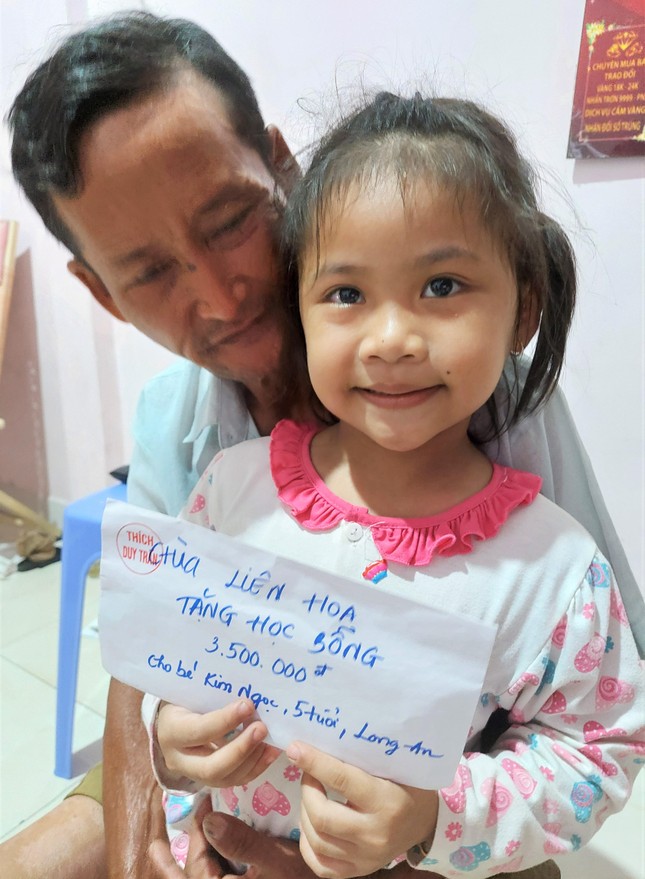 CHUYÊN MUA BÁ
TRAO ĐỔI
VÀNG 18K - 24K
NHẪN TRƠN 9999 - PN
DỊCH VỤ CẦM VÀNG
NHÂN ĐÔI SỐ TRÚNG
THÍCH
DUY TRẤN
CHÙA LIÊN HOA
TẶNG HỌC BỔNG
3.500.000đ
cho bé Kim Ngọc, 5 tuổi, Long An